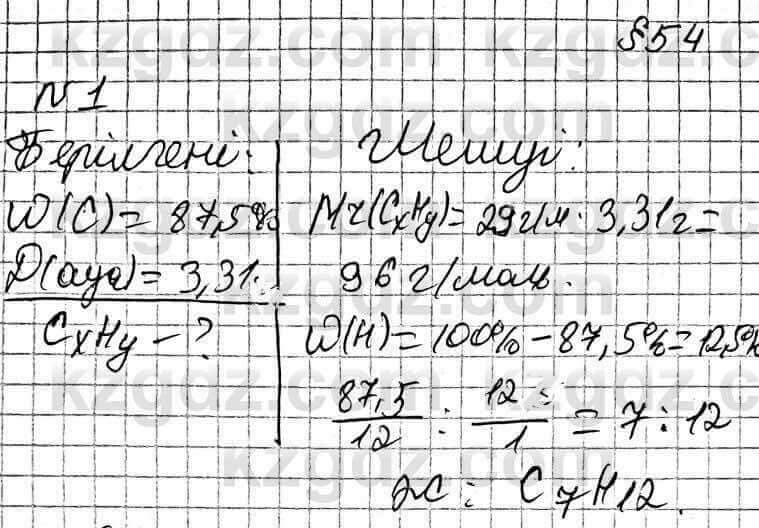 §54
№1
Берілгені:
W(C) = 87,5%
D(ауа) = 3,31.
CxHy - ?
Шешуі:
Mr(CxHy) = 29г/м · 3,31г =
96 г/моль.
W(H) = 100% - 87,5% = 12,5%
87,5/12 : 12/1 = 7 : 12
Ж: C7H12.
kzgdz.com